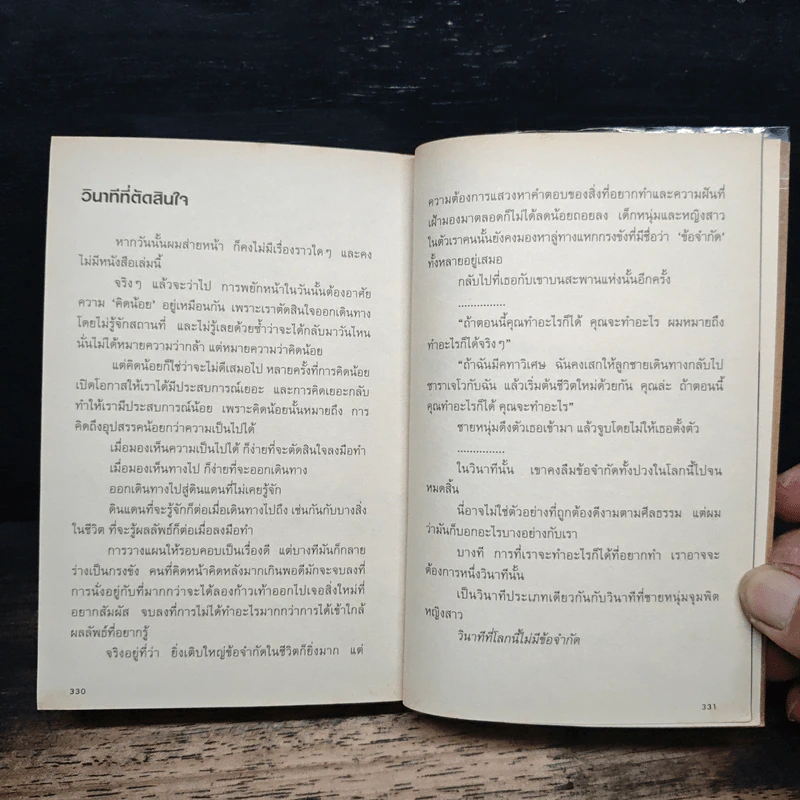 วินาทีที่ตัดสินใจ
หากวันนั้นผมส่ายหน้า ก็คงไม่มีเรื่องราวใดๆ และคง
ไม่มีหนังสือเล่มนี้
จริงๆ แล้วจะว่าไป การพยักหน้าในวันนั้นต้องอาศัย
ความ ‘คิดน้อย’ อยู่เหมือนกัน เพราะเราตัดสินใจออกเดินทาง
โดยไม่รู้จักสถานที่ และไม่รู้เลยด้วยซ้ำว่าจะได้กลับมาวันไหน
นั่นไม่ได้หมายความว่ากล้า แต่หมายความว่าคิดน้อย
แต่คิดน้อยก็ใช่ว่าจะไม่ดีเสมอไป หลายครั้งที่การคิดน้อย
เปิดโอกาสให้เราได้มีประสบการณ์เยอะ และการคิดเยอะกลับ
ทำให้เรามีประสบการณ์น้อย เพราะคิดน้อยนั้นหมายถึง การ
คิดถึงอุปสรรคน้อยกว่าความเป็นไปได้
เมื่อมองเห็นความเป็นไปได้ ก็ง่ายที่จะตัดสินใจลงมือทำ
เมื่อมองเห็นทางไป ก็ง่ายที่จะออกเดินทาง
ออกเดินทางไปสู่ดินแดนที่ไม่เคยรู้จัก
ดินแดนที่จะรู้จักก็ต่อเมื่อเดินทางไปถึง เช่นกันกับบางสิ่ง
ในชีวิต ที่จะรู้ผลลัพธ์ก็ต่อเมื่อลงมือทำ
การวางแผนให้รอบคอบเป็นเรื่องดี แต่บางทีมันก็กลาย
ร่างเป็นกรงขัง คนที่คิดหน้าคิดหลังมากเกินพอดีมักจะจบลงที่
การนั่งอยู่กับที่มากกว่าจะได้ลองก้าวเท้าออกไปเจอสิ่งใหม่ที่
อยากสัมผัส จบลงที่การไม่ได้ทำอะไรมากกว่าการได้เข้าใกล้
ผลลัพธ์ที่อยากรู้
จริงอยู่ที่ว่า ยิ่งเติบใหญ่ข้อจำกัดในชีวิตก็ยิ่งมาก แต่
330
ความต้องการแสวงหาคำตอบของสิ่งที่อยากทำและความฝันที่
เฝ้ามองมาตลอดก็ไม่ได้ลดน้อยถอยลง เด็กหนุ่มและหญิงสาว
ในตัวเราคนนั้นยังคงมองหาลู่ทางแหกกรงขังที่มีชื่อว่า ‘ข้อจำกัด’
ทั้งหลายอยู่เสมอ
กลับไปที่เธอกับเขาบนสะพานแห่งนั้นอีกครั้ง
...............
“ถ้าตอนนี้คุณทำอะไรก็ได้ คุณจะทำอะไร ผมหมายถึง
ทำอะไรก็ได้จริงๆ”
“ถ้าฉันมีคทาวิเศษ ฉันคงเสกให้ลูกชายเดินทางกลับไป
ซาราเจโวกับฉัน แล้วเริ่มต้นชีวิตใหม่ด้วยกัน คุณล่ะ ถ้าตอนนี้
คุณทำอะไรก็ได้ คุณจะทำอะไร”
ชายหนุ่มดึงตัวเธอเข้ามา แล้วจูบโดยไม่ให้เธอตั้งตัว
...............
ในวินาทีนั้น เขาคงลืมข้อจำกัดทั้งปวงในโลกนี้ไปจน
หมดสิ้น
นี่อาจไม่ใช่ตัวอย่างที่ถูกต้องดีงามตามศีลธรรม แต่ผม
ว่ามันก็บอกอะไรบางอย่างกับเรา
บางที การที่เราจะทำอะไรก็ได้ที่อยากทำ เราอาจจะ
ต้องการหนึ่งวินาทีนั้น
เป็นวินาทีประเภทเดียวกันกับวินาทีที่ชายหนุ่มจุมพิต
หญิงสาว
วินาทีที่โลกนี้ไม่มีข้อจำกัด
331